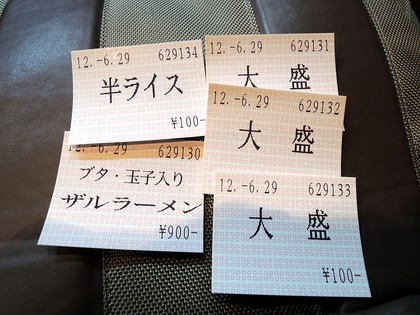 12.-6.29 629134
半ライス
¥100-
12.-6.29 629131
大 盛
12.-6.29 629132
大 盛
12.-6.29 629130
ブタ・玉子入り
ザルラーメン
¥900-
12.-6.29 629133
大 盛
¥100-